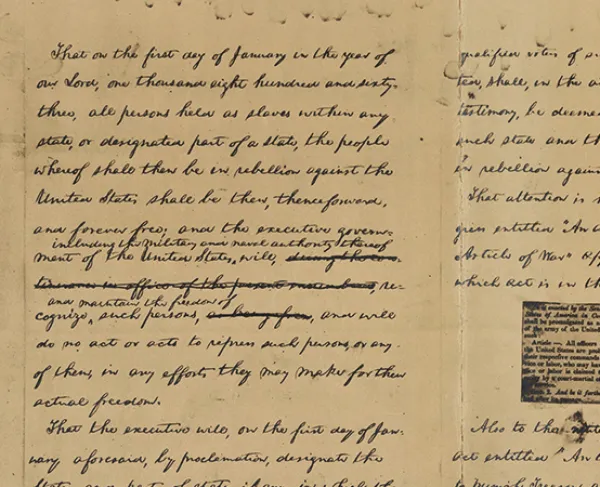 That on the first day of January in the year of
our Lord, one thousand eight hundred and sixty-
three, all persons held as slaves within any
state, or designated part of a state, the people
whereof shall then be in rebellion against the
United States shall be then, thenceforward,
and forever free; and the executive govern-
including the military and naval authority thereof
ment of the United States, will, during the con-
tinuance in office of the present incumbent, re-
and maintain the freedom of
cognize, such persons, as being free, and will
do no act or acts to repress such persons, or any
of them, in any efforts they may make for their
actual freedom.
That the executive will, on the first day of Jan-
uary aforesaid, by proclamation, designate the
qualified voters of
shall, in the
testimony, be deemed
such state and th
in rebellion again
That attention is
gress entitled "An
Article of War"
which act is in th
shall be promulgated as a
of the army of the United
Article —. All officers
the United States are
their respective commands
tion or labor, who may have
vice or labor is claimed
by a court-martial
2. And be it furth
Also to the
act entitled "An